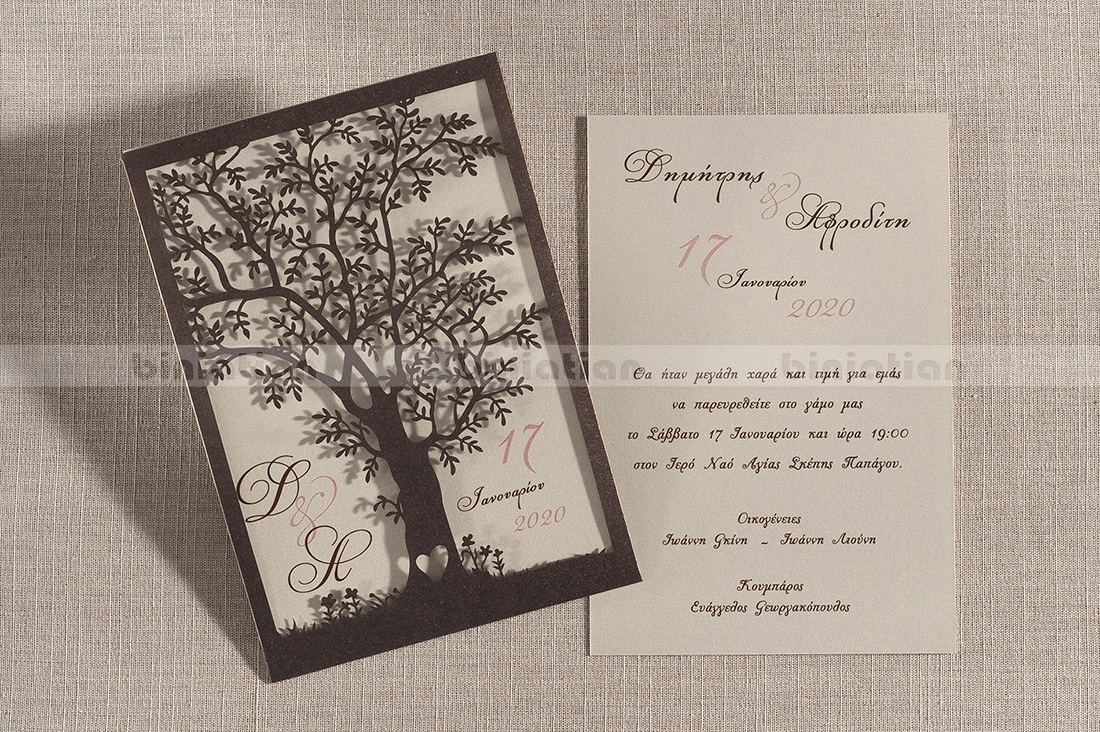 Δ
&
Α
17
Ιανουαρίου
2020
Δημήτρης
&
Αφροδίτη
17
Ιανουαρίου
2020
Θα ήταν μεγάλη χαρά και τιμή για εμάς
να παρευρεθείτε στο γάμο μας
το Σάββατο 17 Ιανουαρίου και ώρα 19:00
στον Ιερό Ναό Αγίας Σκέπης Παπάγου.
Οικογένειες
Ιωάννη Γκίνη ~ Ιωάννη Λιούνη
Κουμπάρος
Ευάγγελος Γεωργακόπουλος
binjatian binjatian binjatian